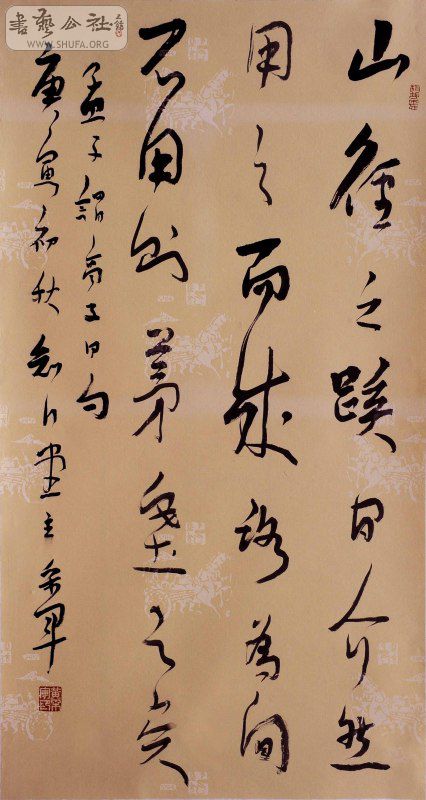 書藝公社
WWW.SHUFA.ORG
山徑之蹊間介然
用之而成路為間
不用則茅塞之矣
孟子謂高子曰句
庚寅初秋知白堂主